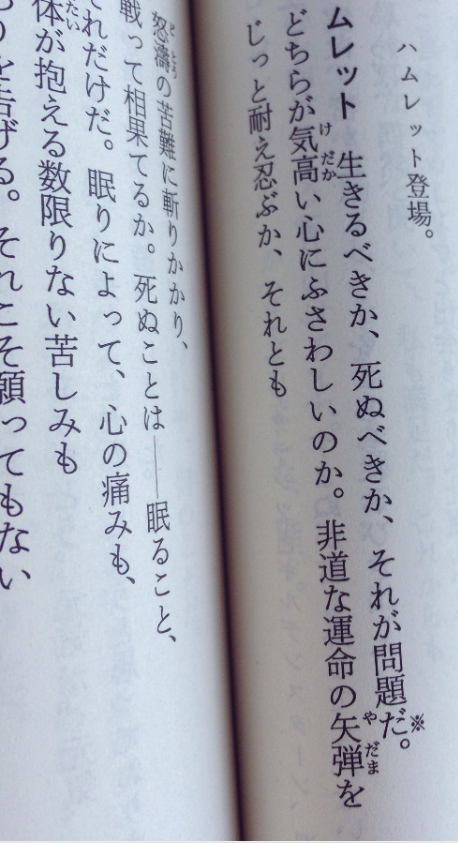 ハムレット登場。
ムレット 生きるべきか、死ぬべきか、それが問題だ。※
どちらが気高い心にふさわしいのか。非道な運命の矢弾を
じっと耐え忍ぶか、それとも
怒濤の苦難に斬りかかり、
戦って相果てるか。死ぬことは——眠ること、
それだけだ。眠りによって、心の痛みも、
体が抱える数限りない苦しみも
を告げる。それこそ願ってもない